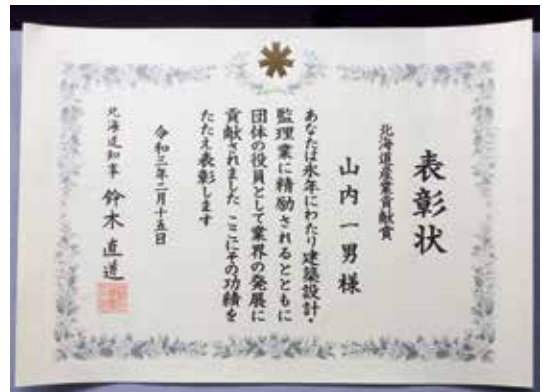 表彰状
北海道産業貢献賞
山内一男様
あなたは永年にわたり建築設計・
監理業に精励されるとともに
団体の役員として業界の発展に
貢献されました ここにその功績を
たたえ表彰します
令和三年二月十五日
北海道知事 鈴木直道